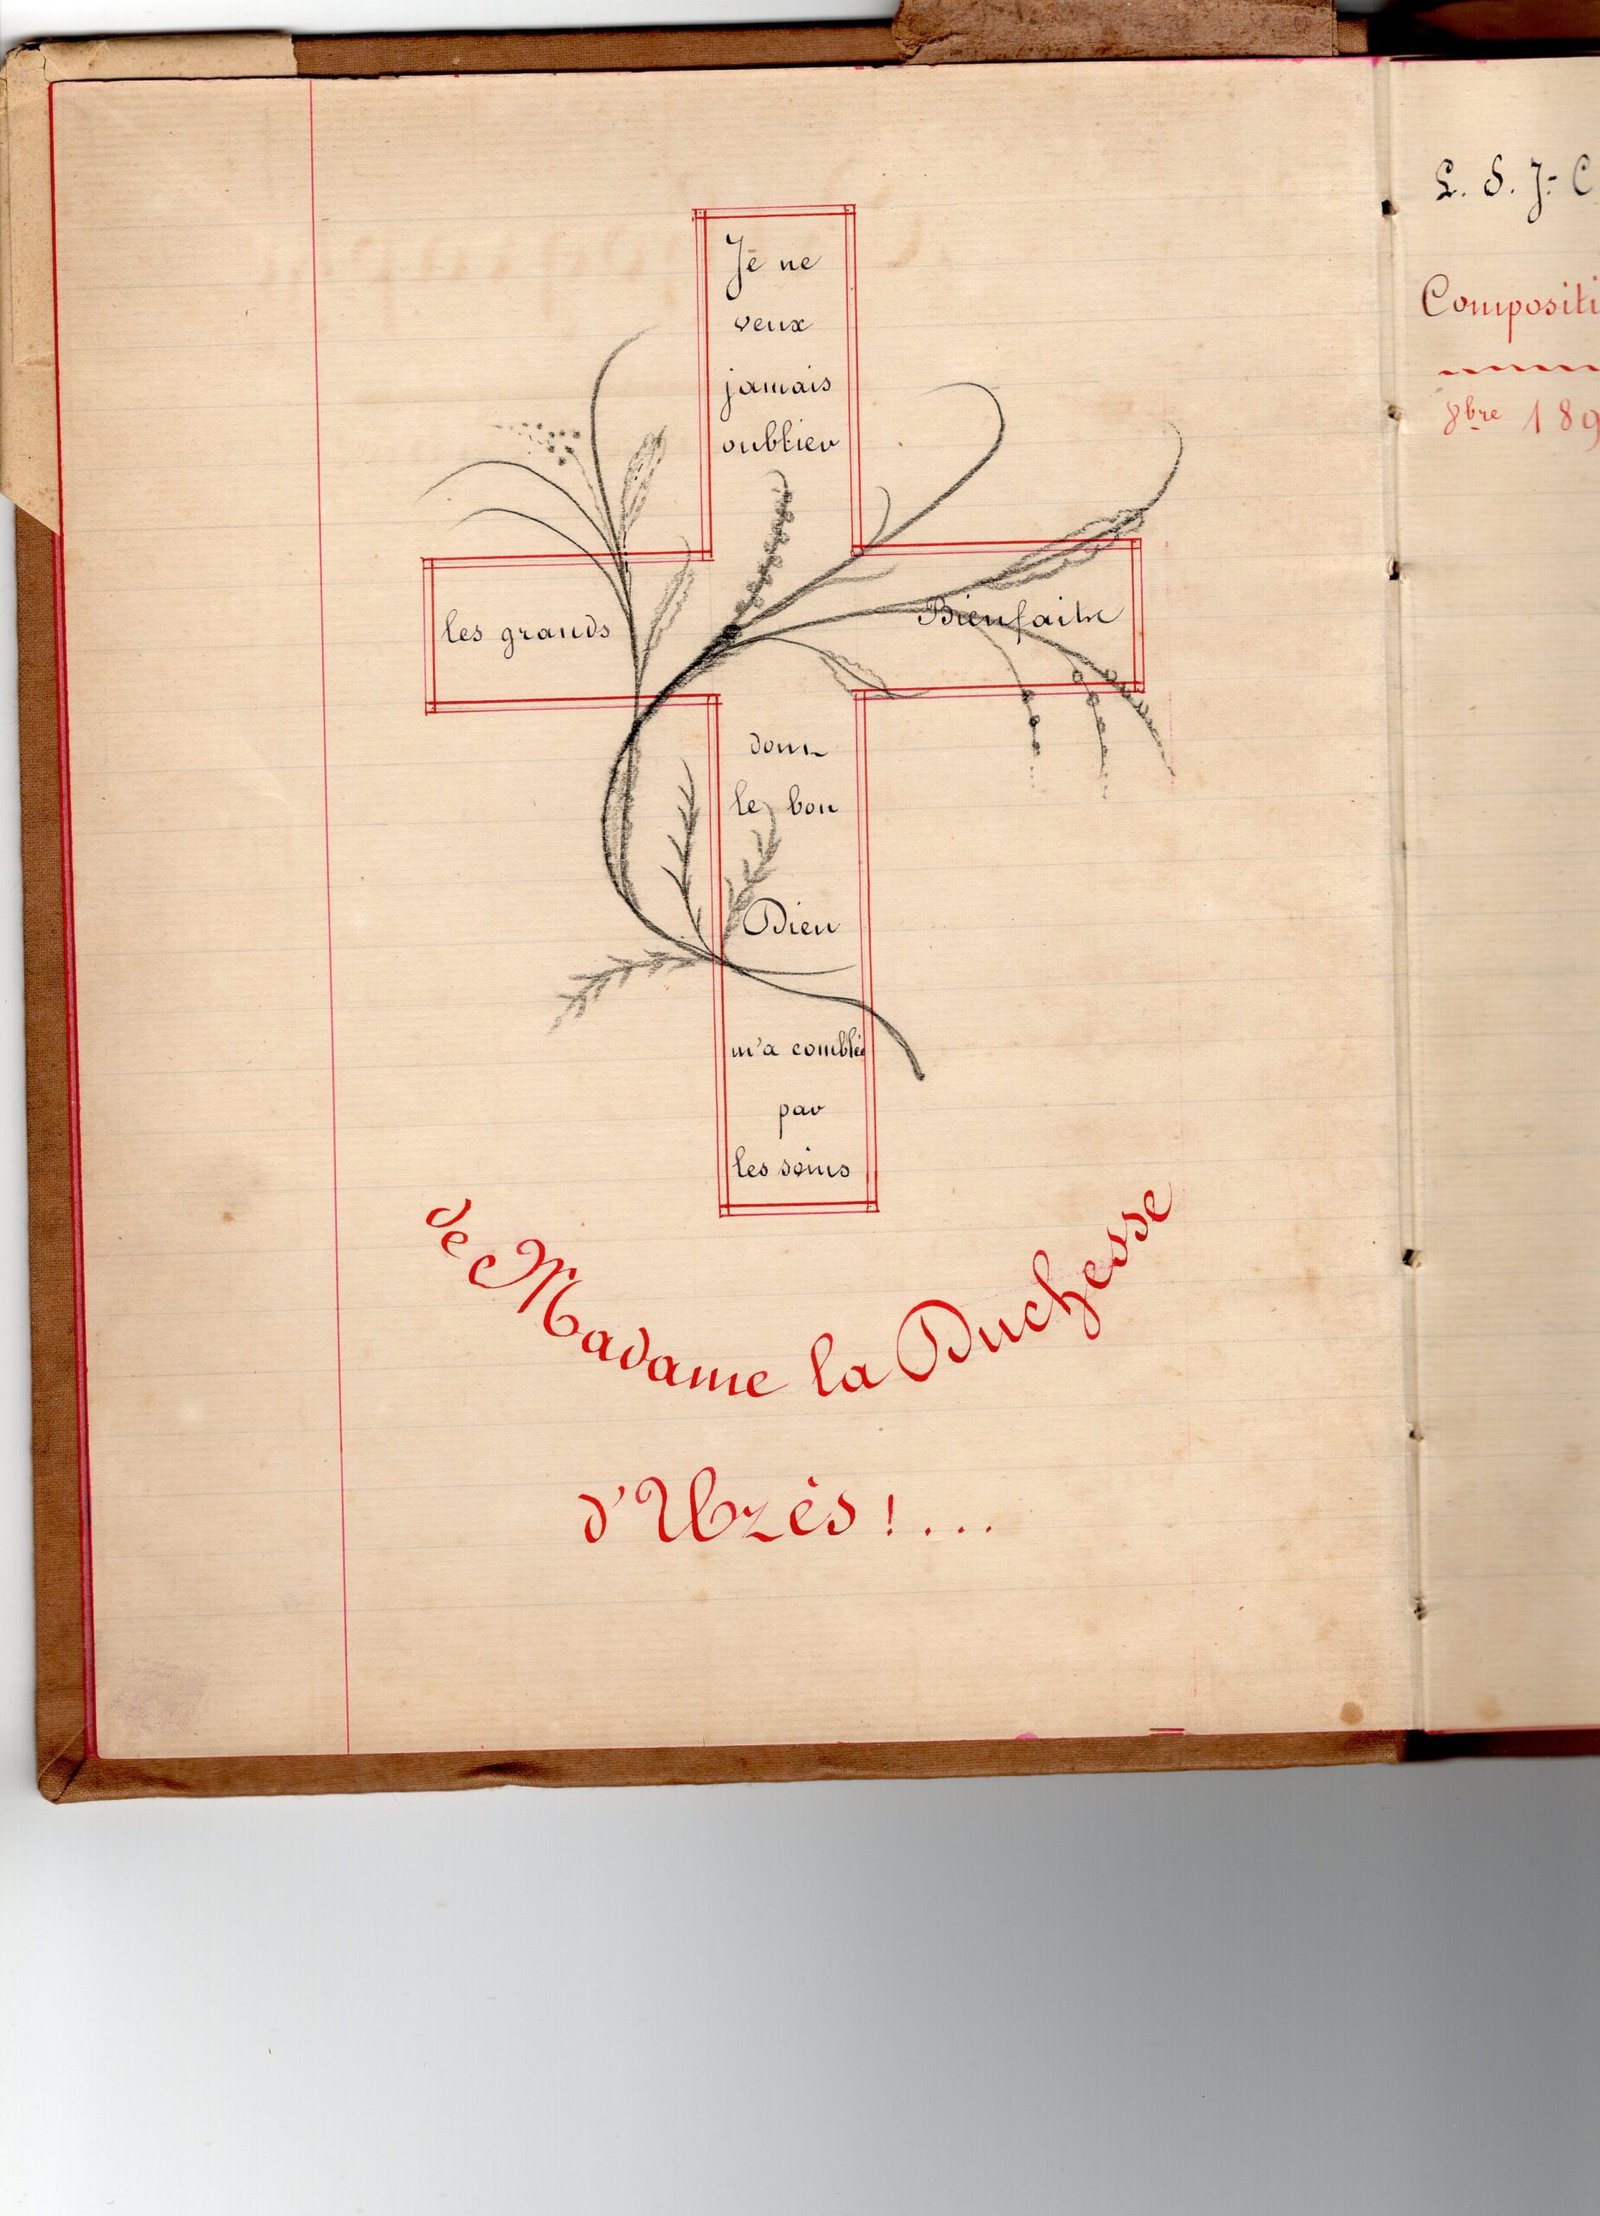 Je ne
veux
jamais
oublier
les grands Bienfaits
dont
le bon
Dieu
m'a comblée
par
les soins
de Madame la Duchesse
d'Uzès!...
L. S. J.- C
Compositi
8bre 189